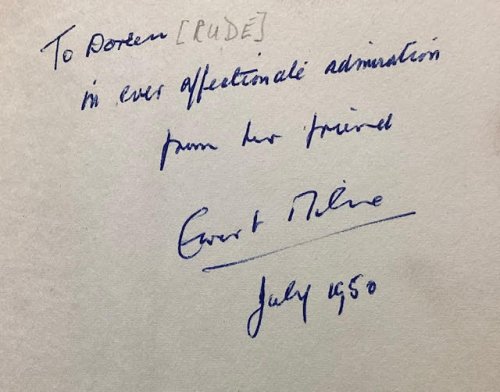 To Doreen [RUDE]
in ever affectionate admiration
from her friend
Ewart Milne
July 1950